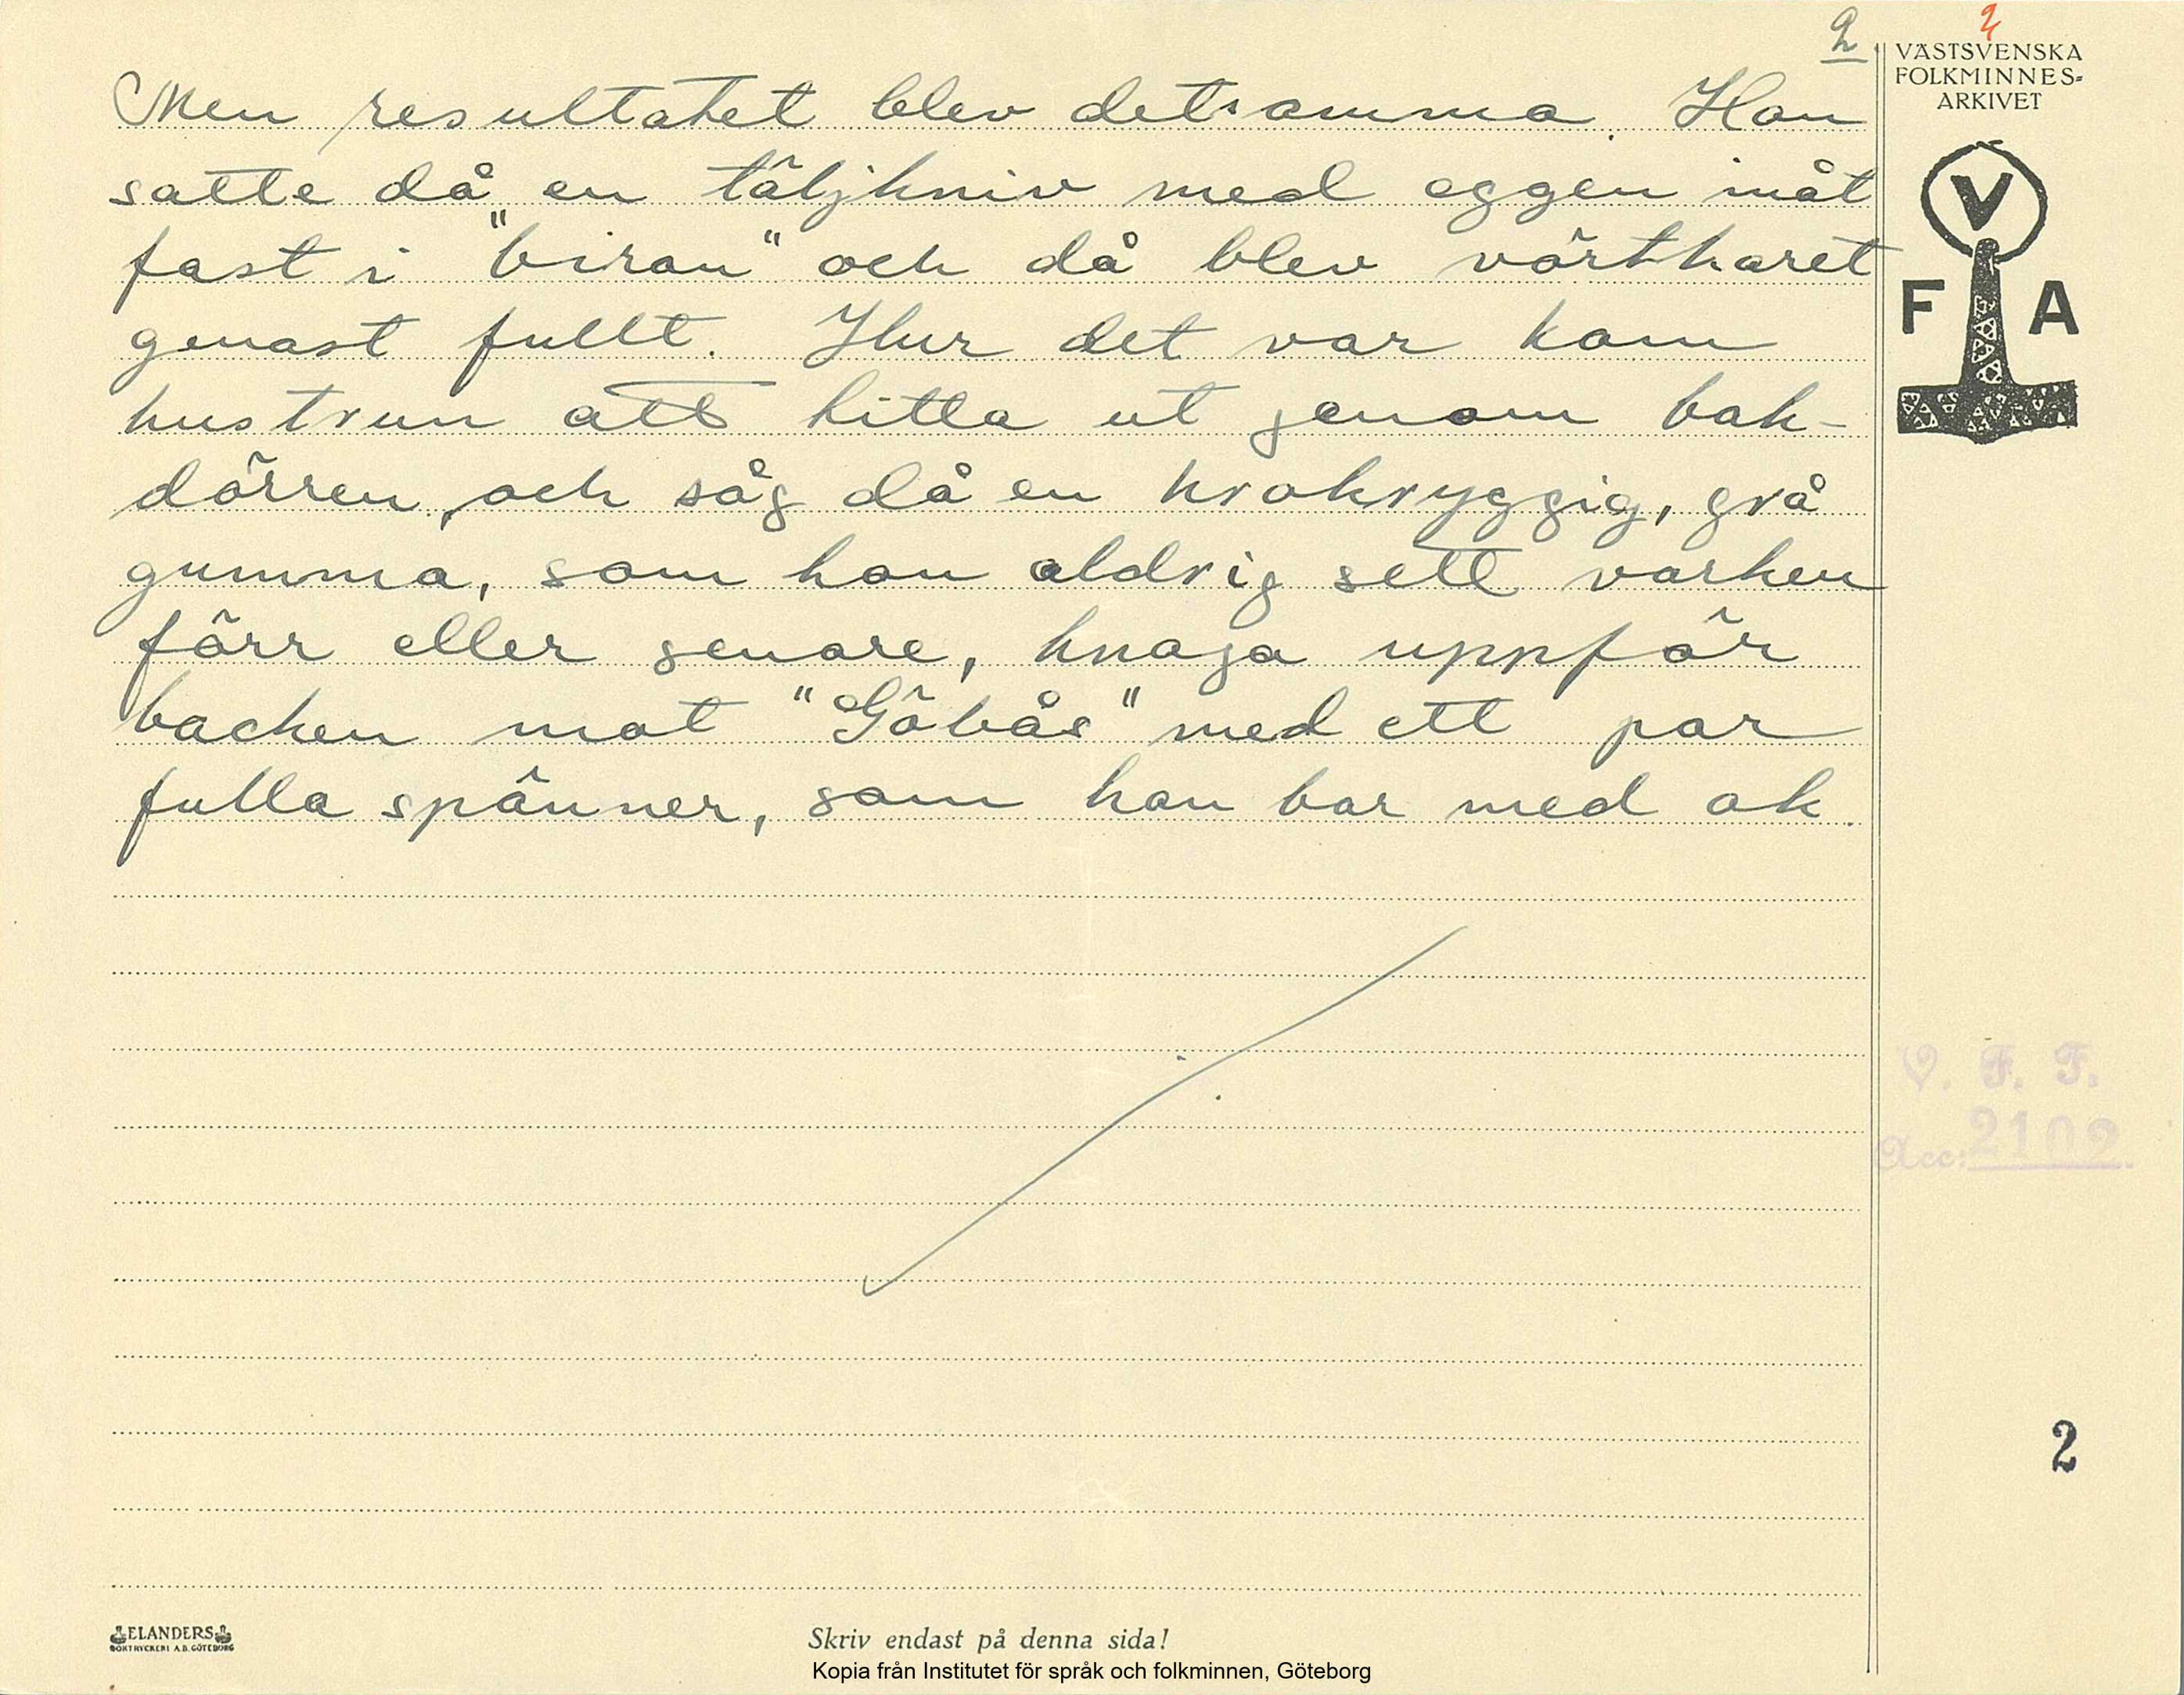 2
2
VÄSTSVENSKA
FOLKMINNES=
ARKIVET
V
F A
Men resultatet blev detsamma. Han
satte då en täljkniv med eggen inåt
fast i "biran" och då blev vörtkaret
genast fullt. Hur det var kom
hustrun att titta ut genom bak-
dörren, och såg då en krokryggig, grå
gumma, som hon aldrig sett varken
förr eller senare, knaga uppför
backen mot "Göbås" med ett par
fulla spänner, som hon bar med ok.
V. F. F.
Acc: 2102.
2
ELANDERS
BOKTRYCKERI A.B. GÖTEBORG
Skriv endast på denna sida!
Kopia från Institutet för språk och folkminnen, Göteborg